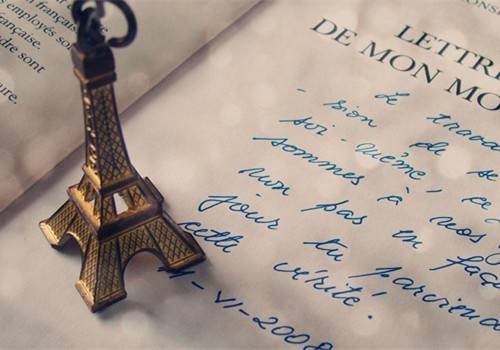 française.
employés son
française.
dre sont
ure.
LETTRE
DE MON MO
- Le trava
sion de se
soi-même, ce
sommes à vos y
non pas en faç
jour tu parviend
cette vérité.
11-VI-2008